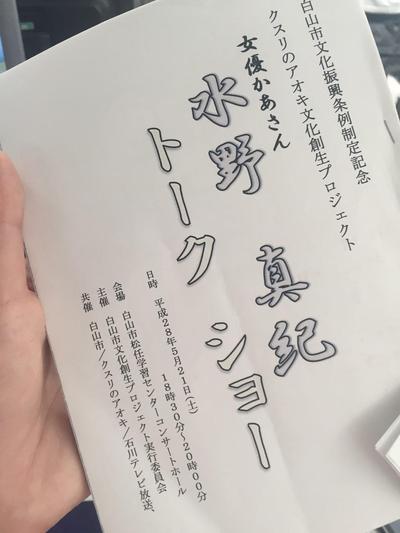 白山市文化振興条例制定記念
クスリのアオキ文化創生プロジェクト
女優かあさん
水野 真紀
トーク ショー
日時 平成28年5月21日(土)
18時30分~20時00分
会場 白山市松任学習センターコンサートホール
主催 白山市文化創生プロジェクト実行委員会
共催 白山市/クスリのアオキ/石川テレビ放送、